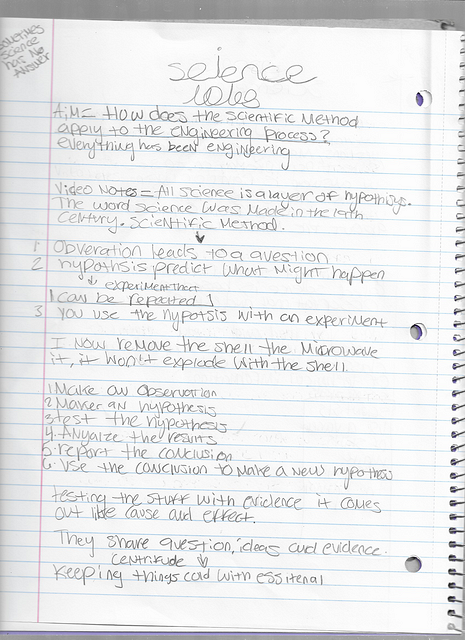 sometimes
science
has no
answer
science
AiM= How does the scientific Method
apply to the engineering process?
everything has been engineering
Video Notes = All science is a layer of hypothisys.
The word science was Made in the 19th
century. Scientific Method.
1 Obveration leads to a question
2 hypothsis predict what Might happen
↓ experiment that
can be repeated
3 you use the hypotsis with an experiment
I now remove the shell the Microwave
it, it won't explode with the shell.
1 Make an observation
2 Maker an hypothesis
3 test the hypothesis
4. Anyalze the results
5. report the conclusion
6. Use the conclusion to Make a new hypothesis
testing the stuff with evidence it comes
out like cause and effect.
They share question, ideas and evidence.
centrifude ↓
Keeping things cold with essitenal